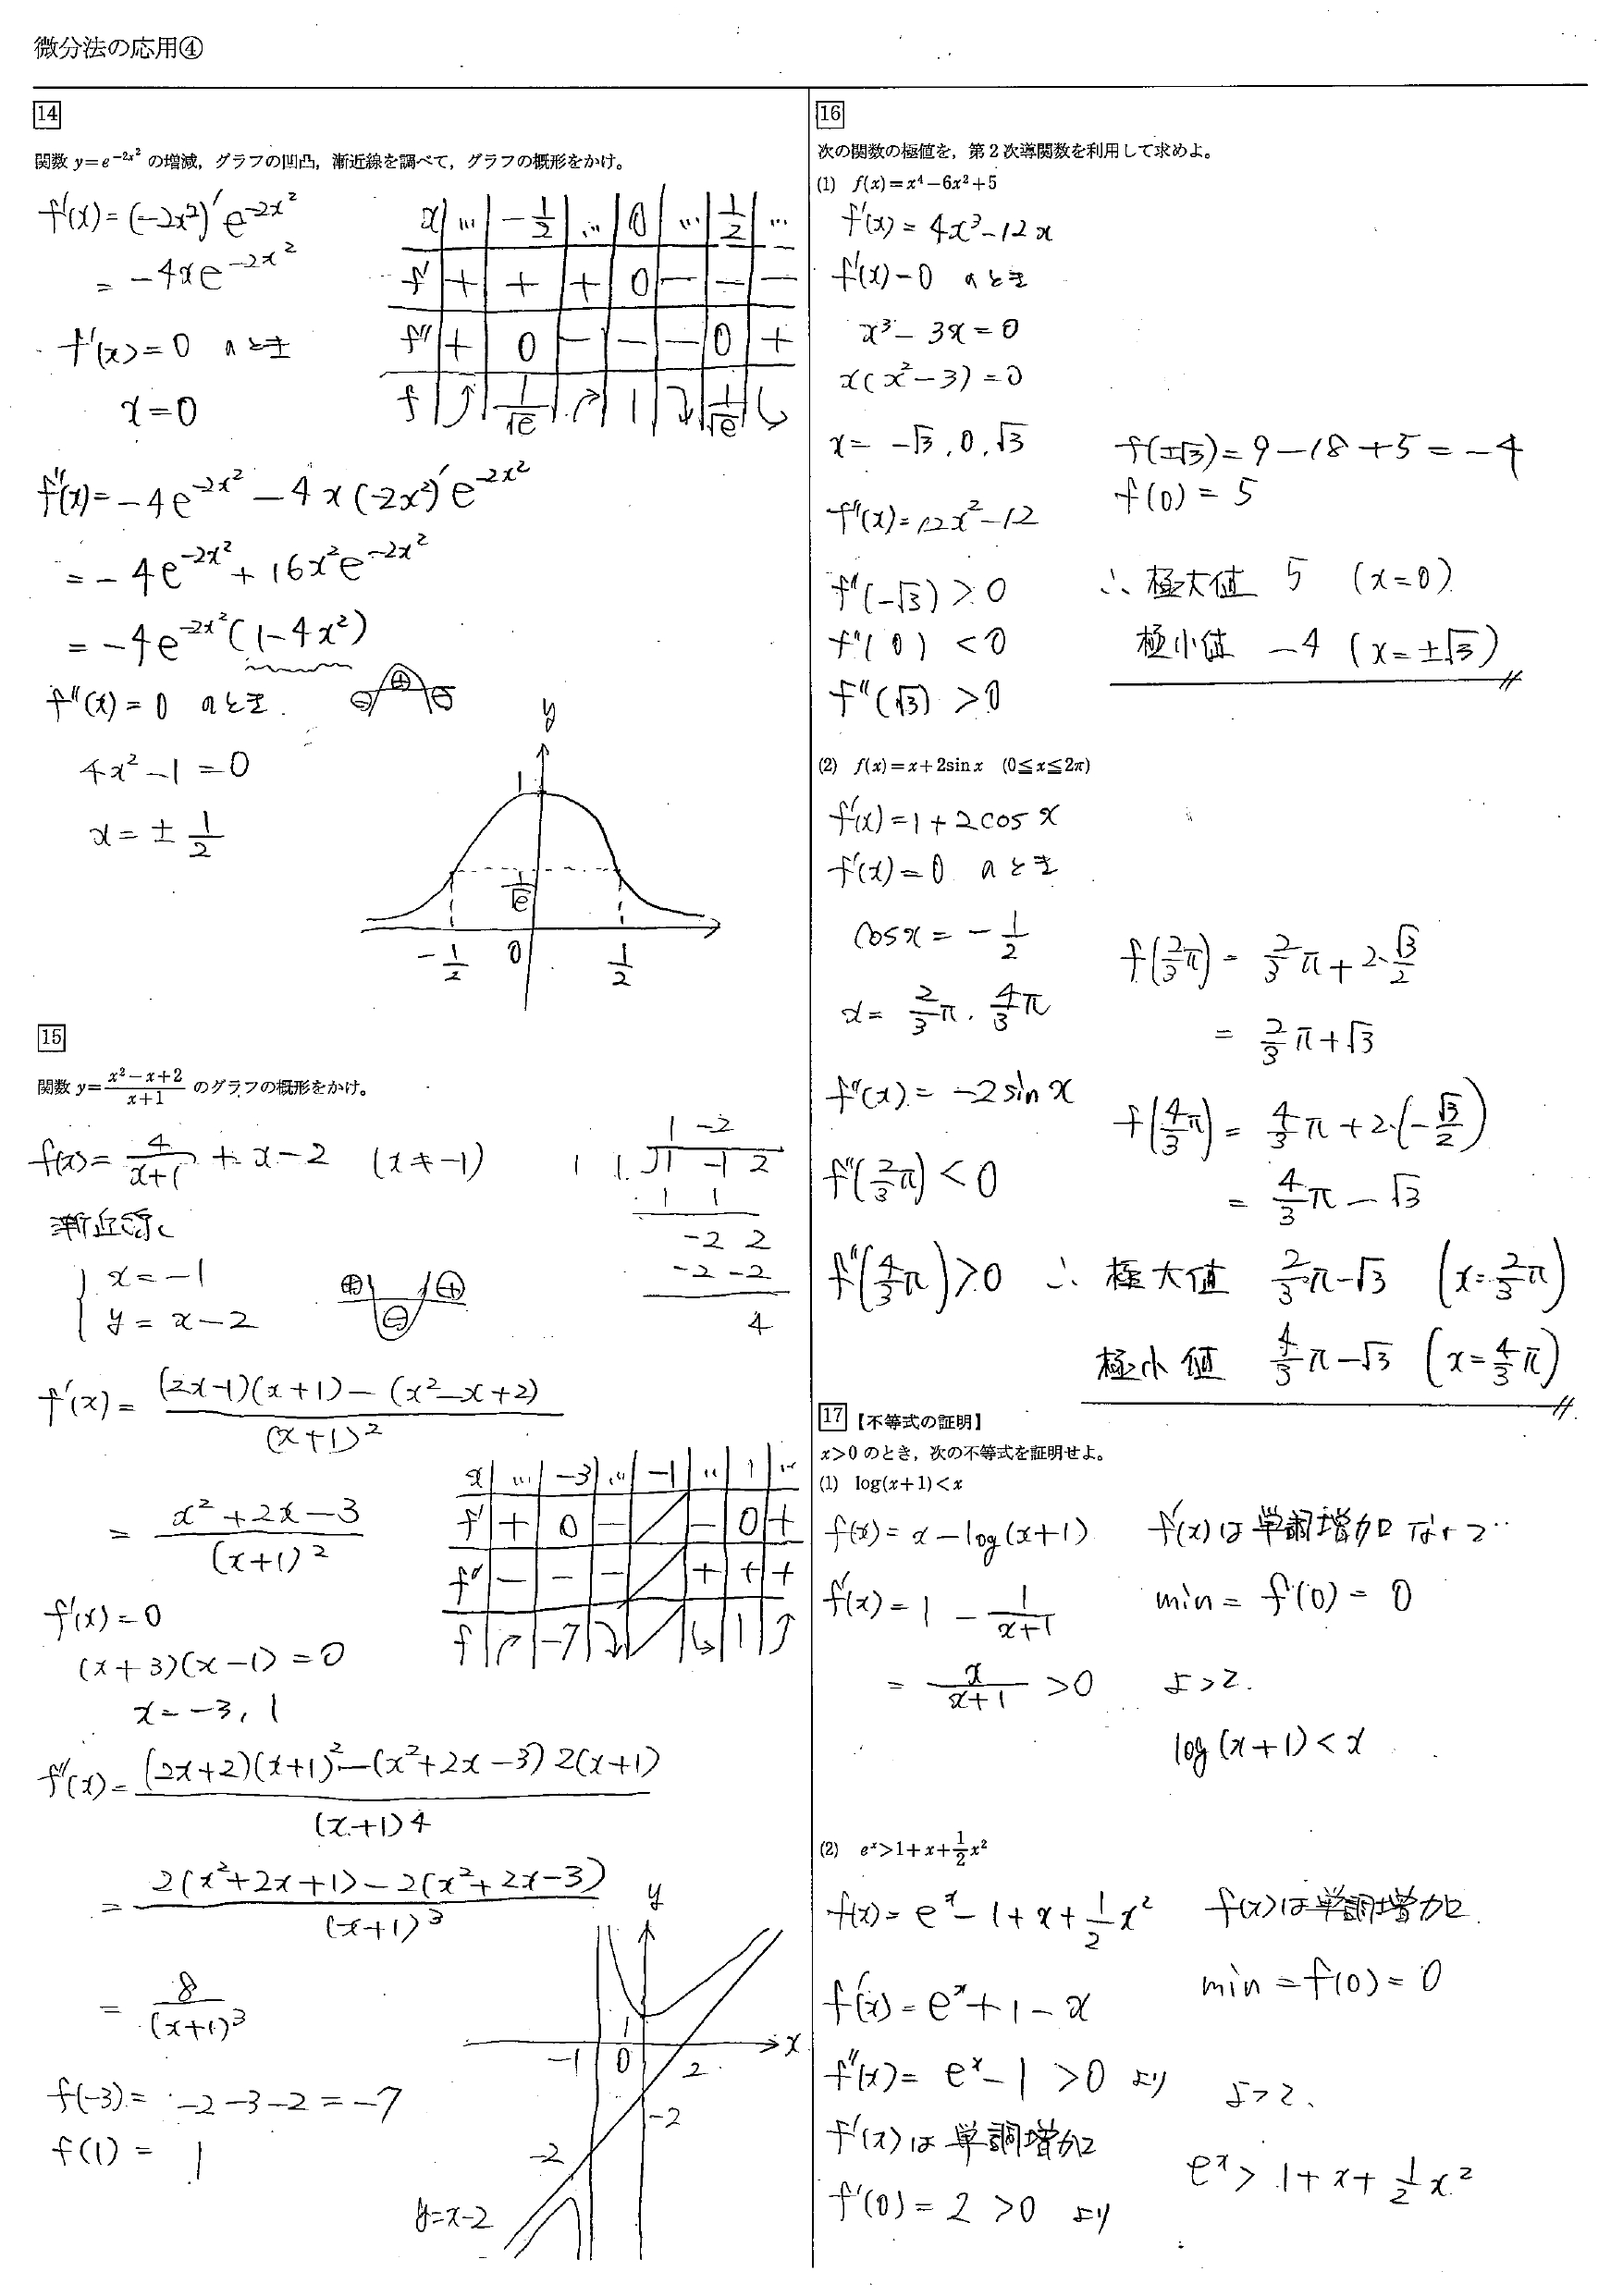 微分法の応用④
14
関数 y=e^{-2x^2} の増減，グラフの凹凸，漸近線を調べて，グラフの概形をかけ。
f'(x)=(-2x^2)'e^{-2x^2}
= -4xe^{-2x^2}
f'(x)=0 のとき
x=0
x | … | -1/2 | … | 0 | … | 1/2 | …
f' | + | + | + | 0 | - | - | -
f'' | + | 0 | - | - | - | 0 | +
f | ⤴ | 1/√e | ↱ | 1 | ⤵ | 1/√e | ↳
f''(x)=-4e^{-2x^2}-4x(-2x^2)'e^{-2x^2}
=-4e^{-2x^2}+16x^2e^{-2x^2}
=-4e^{-2x^2}(1-4x^2)
f''(x)=0 のとき.
⊖ ⊕ ⊖
4x^2-1=0
x=±1/2
y
1
1/√e
-1/2 0 1/2
15
関数 y=(x^2-x+2)/(x+1) のグラフの概形をかけ。
f(x)=4/(x+1)+x-2 (x≠-1)
1 -2
1 1 √1 -1 2
1 1
-2 2
-2 -2
4
漸近線
{ x=-1
y=x-2
⊕ ⊖ ⊕
f'(x)=((2x-1)(x+1)-(x^2-x+2))/(x+1)^2
=(x^2+2x-3)/(x+1)^2
f'(x)=0
(x+3)(x-1)=0
x=-3, 1
x | … | -3 | … | -1 | … | 1 | …
f' | + | 0 | - | ／ | - | 0 | +
f'' | - | - | - | ／ | + | + | +
f | ↱ | -7 | ⤵ | ／ | ↳ | 1 | ⤴
f''(x)=((2x+2)(x+1)^2-(x^2+2x-3)2(x+1))/(x+1)^4
=(2(x^2+2x+1)-2(x^2+2x-3))/(x+1)^3
=8/(x+1)^3
f(-3)=-2-3-2=-7
f(1)=1
y
1
-1 0 2 x
-2
-2
y=x-2
16
次の関数の極値を，第2次導関数を利用して求めよ。
(1) f(x)=x^4-6x^2+5
f'(x)=4x^3-12x
f'(x)-0 のとき
x^3-3x=0
x(x^2-3)=0
x=-√3, 0, √3
f''(x)=12x^2-12
f''(-√3)>0
f''(0)<0
f''(√3)>0
f(±√3)=9-18+5=-4
f(0)=5
∴ 極大値 5 (x=0)
極小値 -4 (x=±√3)
(2) f(x)=x+2sinx (0≦x≦2π)
f'(x)=1+2cosx
f'(x)=0 のとき
cosx=-1/2
x=2/3π, 4/3π
f''(x)=-2sinx
f''(2/3π)<0
f''(4/3π)>0
f(2/3π)=2/3π+2・√3/2
=2/3π+√3
f(4/3π)=4/3π+2・(-√3/2)
=4/3π-√3
∴ 極大値 2/3π-√3 (x=2/3π)
極小値 4/3π-√3 (x=4/3π)
17【不等式の証明】
x>0 のとき，次の不等式を証明せよ。
(1) log(x+1)<x
f(x)=x-log(x+1)
f'(x)=1-1/(x+1)
=x/(x+1)>0
f'(x)は単調増加なので
min=f'(0)=0
よって.
log(x+1)<x
(2) e^x>1+x+1/2x^2
f(x)=e^x-1+x+1/2x^2
f'(x)=e^x+1-x
f''(x)=e^x-1>0 より
f'(x)は単調増加
f'(0)=2>0 より
f(x)は単調増加.
min=f(0)=0
よって.
e^x>1+x+1/2x^2